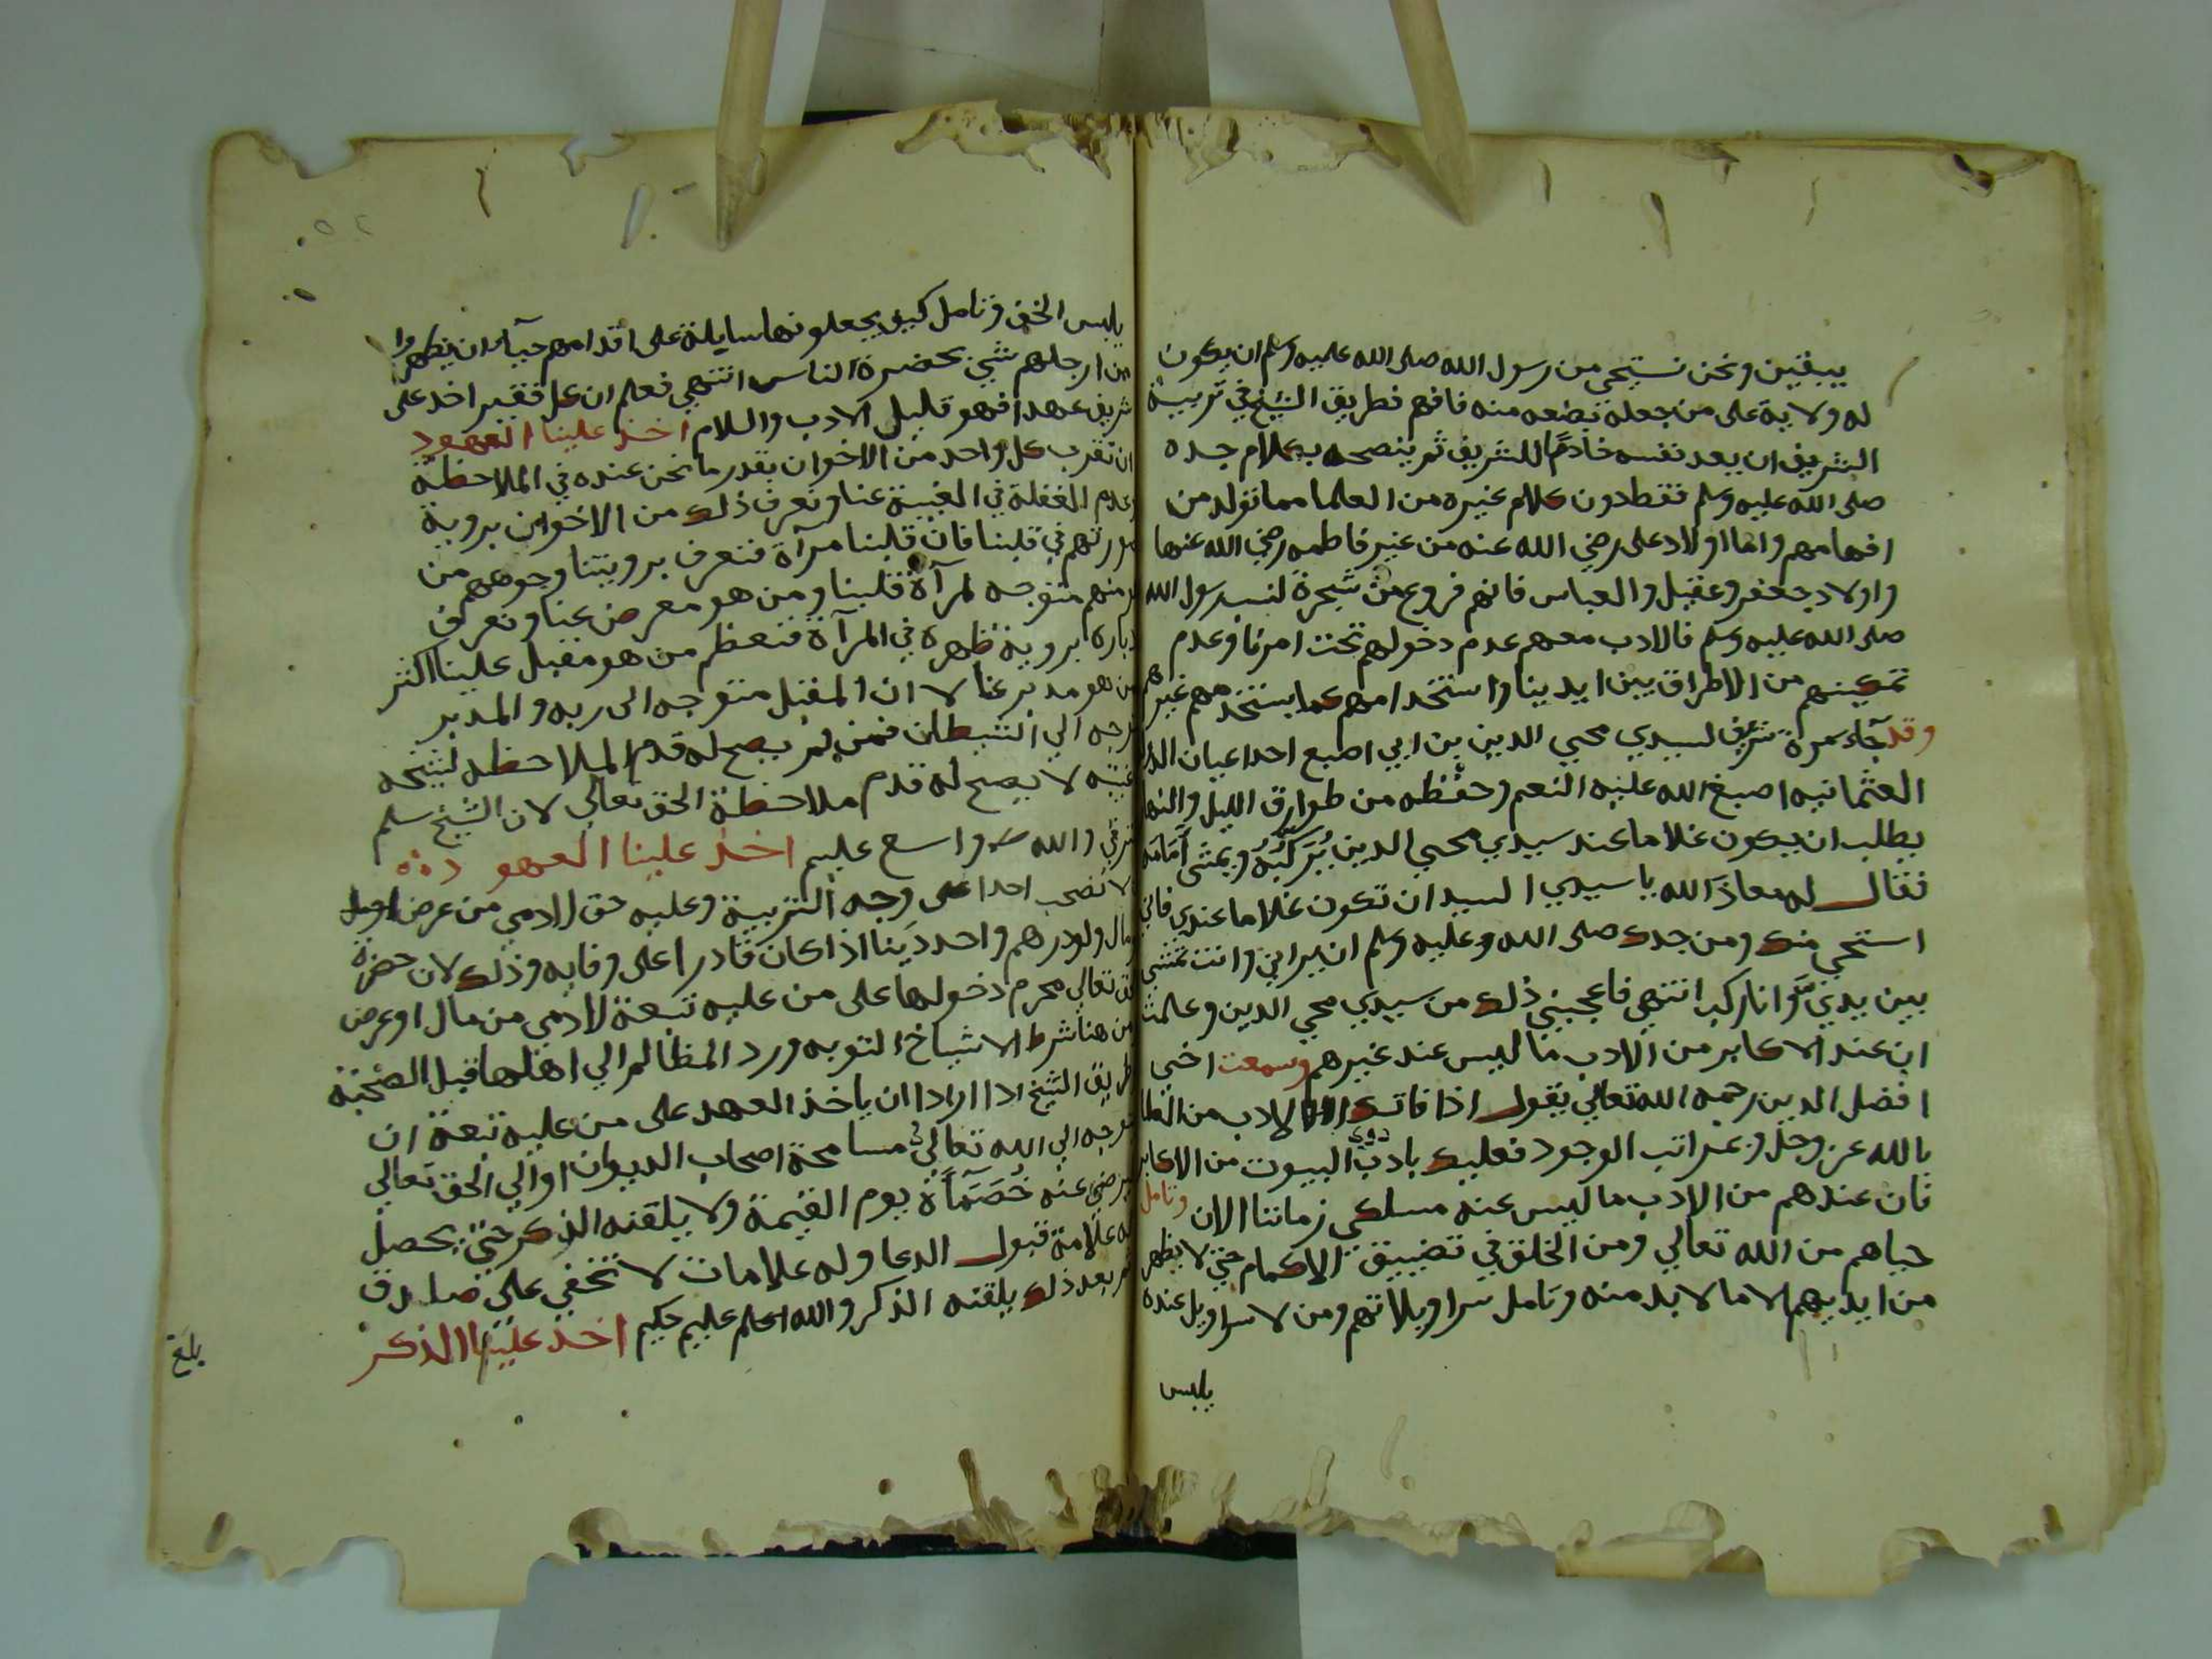 بيقين ونحن نستحي من رسول الله صلى الله عليه وسلم ان يكون
له ولاية على من جعله بضعه منه فافهم فطريق الشيخ في تربية
الشريف ان يعد نفسه خادمًا للشريف ثم ينصحه بكلام جده
صلى الله عليه وسلم فقط دون كلام غيره من العلما مما تولد من
افهامهم واما اولاد على رضي الله عنه من غير فاطمه رضي الله عنها
واولاد جعفر وعقيل والعباس فانهم فروع من شجرة لنسب رسول الله
صلى الله عليه وسلم فالادب معهم عدم دخولهم تحت امرنا وعدم
تمكينهم من الاطراق بين ايدينا واستخدامهم كما يستخدمهم غيرهم
وقد جآء مرة شريف لسيدي محيي الدين بن ابي اصبع احد اعيان
العثمانيه اصبغ الله عليه النعم وحفظه من طوارق الليل والنها
يطلب ان يكون غلاما عند سيدي محيي الدين يُرَكِّبُهُ ويمشي أمَامَه
فقال له معاذ الله يا سيدي السيد ان تكون غلاما عندي فاني
استحي منك ومن جدك صلى الله وعليه وسلم ان يراني وانت تمشي
بين يديّ وانا راكب انتهى فاعجبني ذلك من سيدي محي الدين وعلمت
ان عند الاكابر من الادب ما ليس عند غيرهم وسمعت اخي
افضل الدين رحمه الله تعالى يقول اذا فاتك الادب من
بالله عز وجل وبمراتب الوجود فعليك بادب ذوي البيوت من الاكابر
فان عندهم من الادب ما ليس عند مسلكي زماننا الان وتامل
حياهم من الله تعالى ومن الخلق في تضييق الاكمام حتي لا يظهر
من ايديهم الا ما لا بد منه وتامل سراويلاتهم ومن لا سراويل عنده
يلبس
يلبس الخف وتامل كيف يجعلونها سايلة على اقدامهم حيآء ان يظهروا
من ارجلهم شي بحضرة الناس انتهي فعلم ان كل فقير اخذ على
شريف عهدا فهو قليل الادب والسلام اخذ علينا العهود
ان نقرب كل واحد من الاخوان بقدر ما نحن عنده في الملاحظة
وعدم الغفلة في الغيبة عنا ونعرف ذلك من الاخوان بروية
صورتهم في قلبنا فان قلبنا مرآة فنعرف برويتنا وجوههم من
هو منهم متوجه لمرآة قلبنا ومن هو معرض عنا ونعرف
ادباره بروية ظهره في المرآة فنعظم من هو مقبل علينا اكثر
من هو مدبر عنا لا ان المقبل متوجه الى ربه والمدبر
متوجه الي الشيطان فمن لم يصح له قدم الملاحظه لشيخه
لا يصح له قدم ملاحظة الحق تعالى لان الشيخ سلم
والله واسع عليم اخذ علينا العهود
لا نصحب احدا على وجه التربية وعليه حق لادمي من عرض او
مال ولو درهم واحد دَينا اذا كان قادرا على وفايه وذلك لان حضرة
الحق تعالى محرم دخولها على من عليه تبعة لادمي من مال او عرض
ومن هنا شرط الاشياخ التوبه ورد المظالم الي اهلها قبل الصحبة
وطريق الشيخ اذا اراد ان ياخذ العهد على من عليه تبعة ان
يتوجه الي الله تعالى في مسامحة اصحاب الديوان او الي الحق تعالي
يرضي عنه خُصَمَآءَهُ يوم القيمة ولا يلقنه الذكر حتى يحصل
له علامة قبول الدعا وله علامات لا تخفي على صادق
ثم بعد ذلك يلقنه الذكر والله اعلم عليم حكيم اخذ علينا الذكر
بلغ